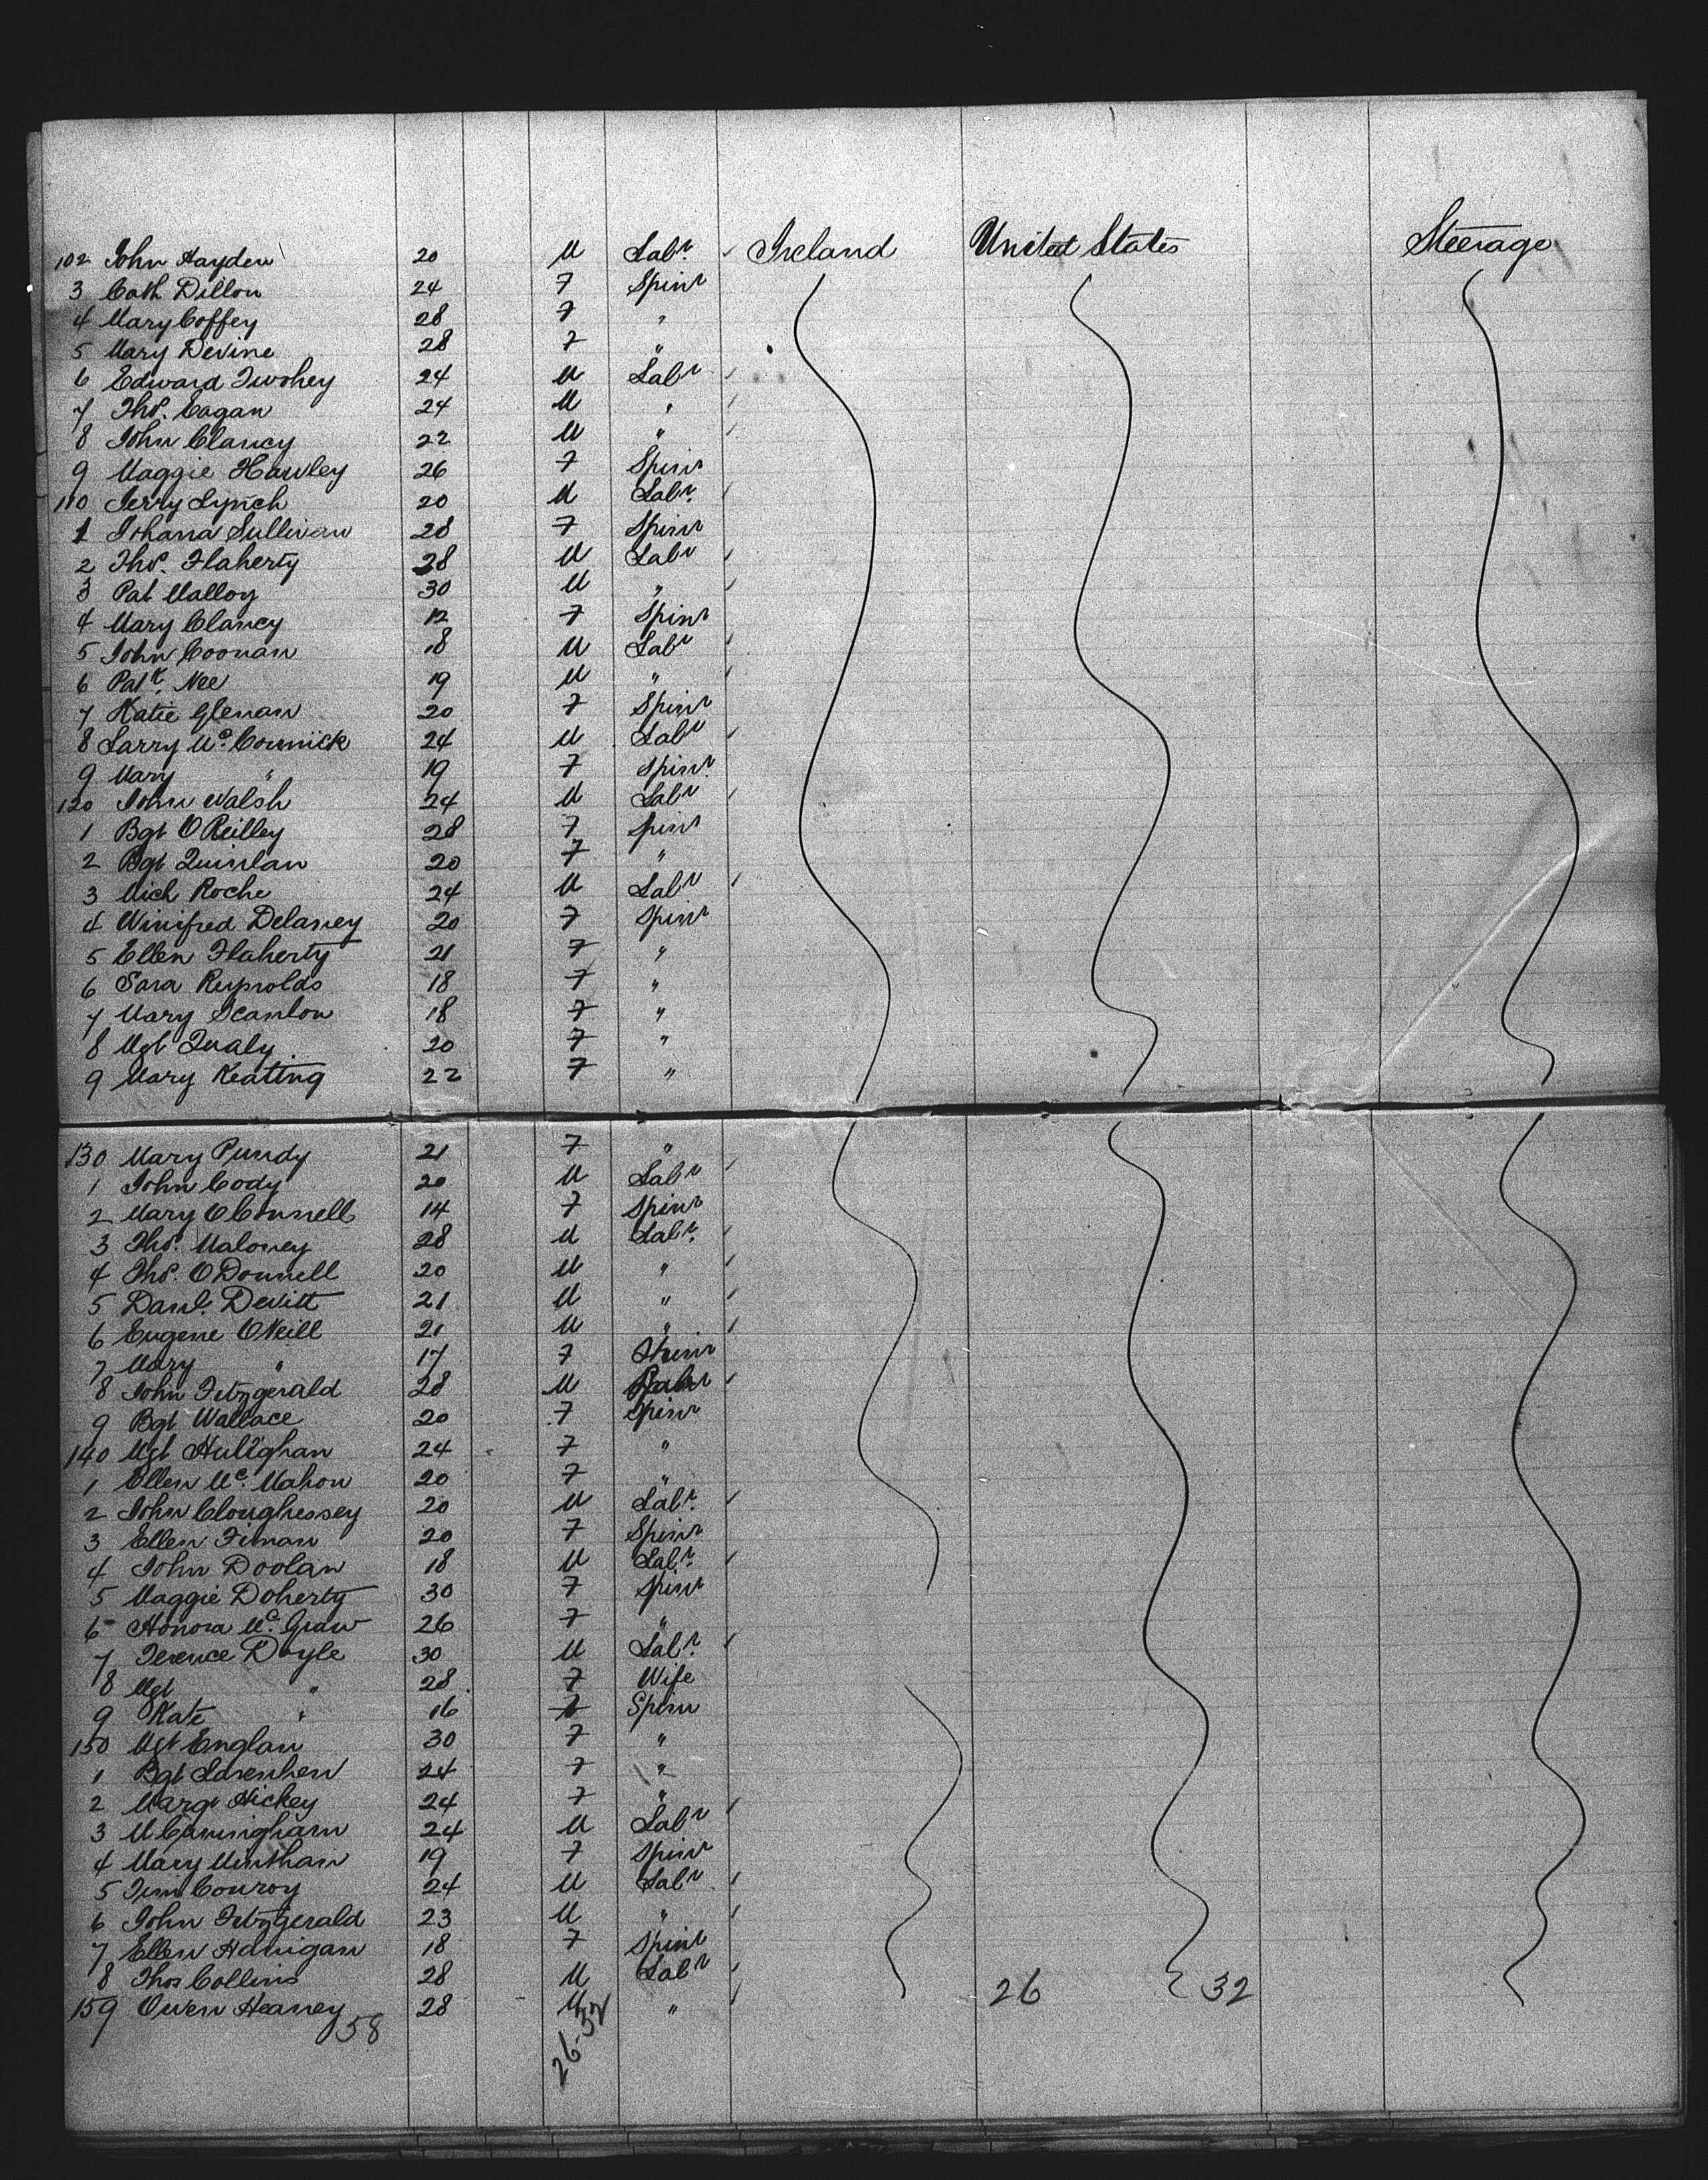 102 John Hayden 20 M Labr. Ireland United States Steerage
3 Cath Dillon 24 F Spinr
4 Mary Coffey 28 F "
5 Mary Devine 28 F "
6 Edward Twohey 24 M Labr
7 Thos. Eagan 24 M "
8 John Clancy 22 M "
9 Maggie Hawley 26 F Spinr
110 Jerry Lynch 20 M Labr.
1 Johana Sullivan 28 F Spinr
2 Thos. Flaherty 28 M Labr
3 Pat Malloy 30 M "
4 Mary Clancy 12 F Spinr
5 John Coonan 18 M Labr
6 Patk. Nee 19 M "
7 Katie Glenan 20 F Spinr
8 Larry Mc. Cormick 24 M Labr
9 Mary " 19 F Spinr.
120 John Walsh 24 M Labr
1 Bgt O Reilley 28 F Spinr
2 Bgt Quinlan 20 F "
3 Mich Roche 24 M Labr
4 Winifred Delaney 20 F Spinr
5 Ellen Flaherty 21 F "
6 Sara Reynolds 18 F "
7 Mary Scanlon 18 F "
8 Mgt Qualy 20 F "
9 Mary Keating 22 F "
130 Mary Pundy 21 F "
1 John Cody 20 M Labr
2 Mary O Connell 14 F Spinr
3 Thos. Maloney 28 M Labr.
4 Thos. O Donnell 20 M "
5 Danl. Devitt 21 M "
6 Eugene O Neill 21 M "
7 Mary " 17 F Spinr
8 John Fitzgerald 28 M Labr
9 Bgt Wallace 20 F Spinr
140 Mgt Hulighan 24 F "
1 Ellen Mc. Mahon 20 F "
2 John Cloughessey 20 M Labr.
3 Ellen Finan 20 F Spinr
4 John Doolan 18 M Labr.
5 Maggie Doherty 30 F Spinr
6 Honora Mc. Graw 26 F "
7 Terence Doyle 30 M Labr.
8 Mgt " 28 F Wife
9 Kate " 16 F Spinr
150 Mgt Englan 30 F "
1 Bgt 24 F "
2 Margt Hickey 24 F "
3 M Cunningham 24 M Labr
4 Mary Minihan 19 F Spinr
5 Tim Conroy 24 M Labr.
6 John Fitzgerald 23 M "
7 Ellen Hanigan 18 F Spinr
8 Thos Collins 28 M Labr 26 32
159 Owen Heaney 28 M "
58 26-32